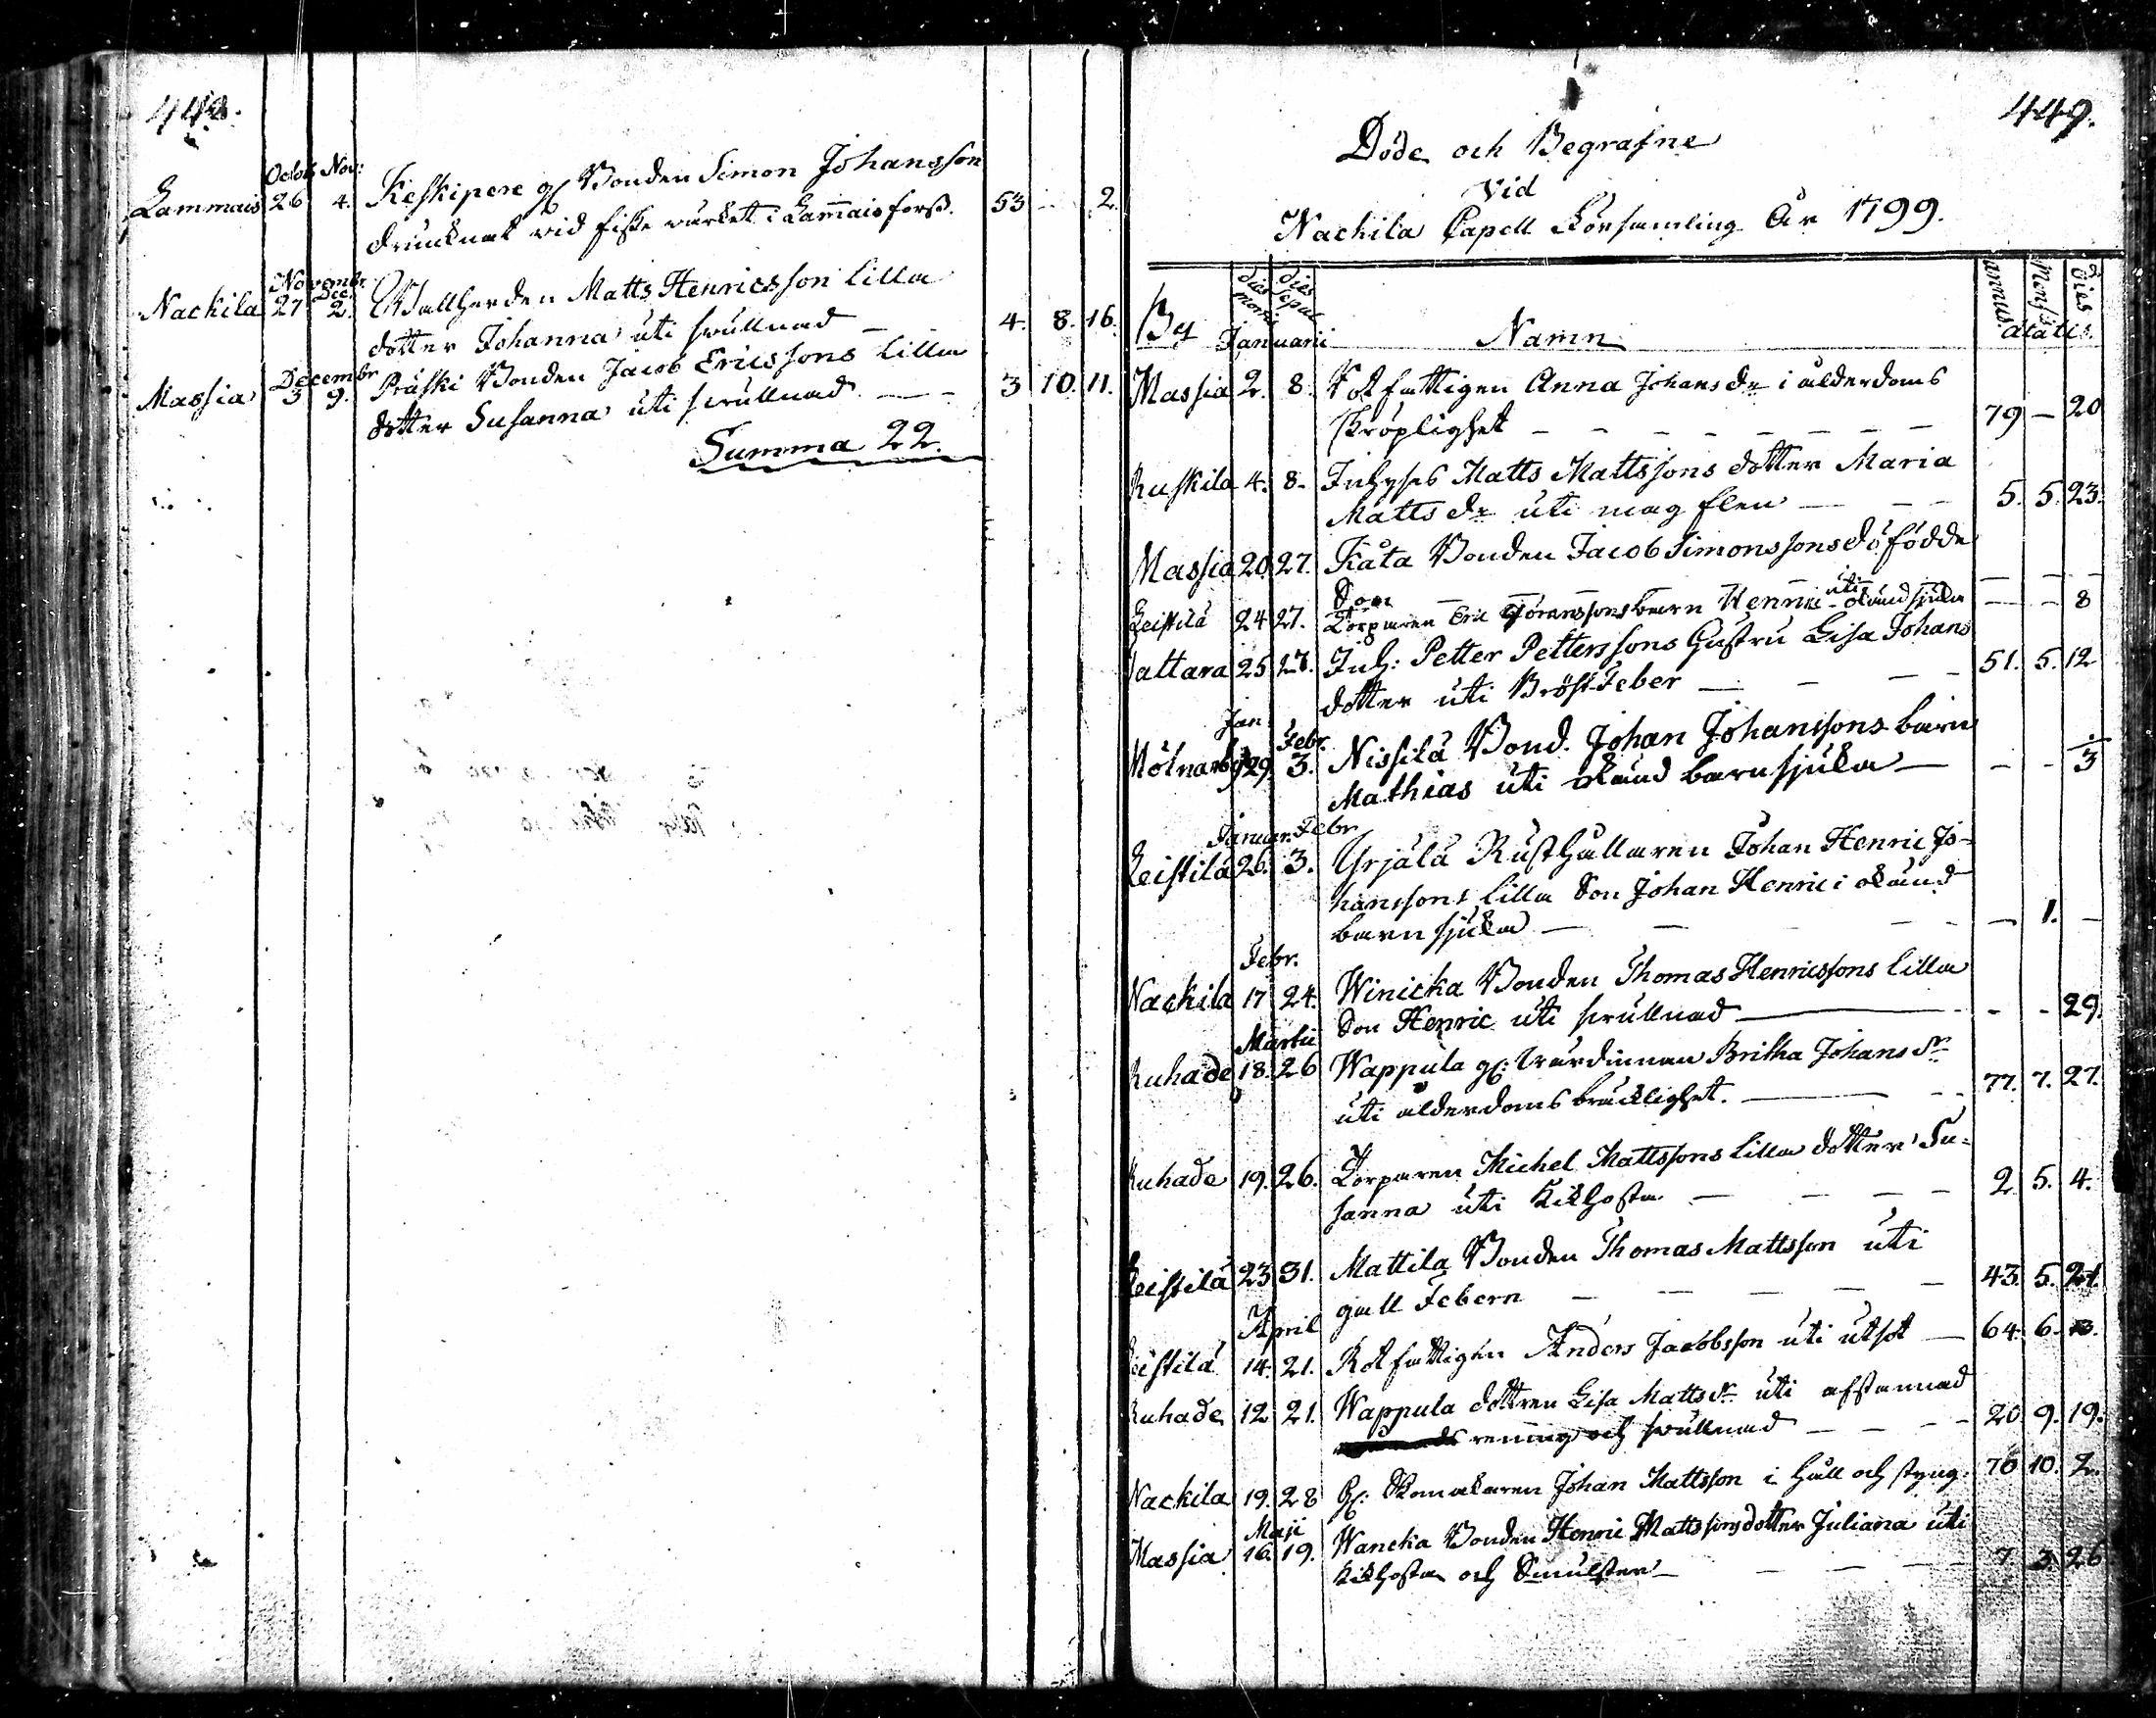 448.
Octob. Nov:
Lammais 26 4. Keskipere gl Bonden Simon Johansson
drunknat vid fiske värket i Lam̄ais forss. 53 - 2.
Novembr. Dec.
Nackila 27 2. Wallherden Matts Henricsson lilla
dotter Johanna uti svullnad - 4. 8. 16.
Decembr
Massia 3 9. Präski Bonden Jacob Ericssons lilla
dotter Susanna uti svullnad - - 3 10. 11.
Summa 22.
449.
Döde och Begrafne
Vid
Nackila Capell Församling År 1799.
By dies mortis dies sepul Namn annus. Mens. dies
Januarii ætatis.
Massia 2. 8. Rotfattigen Anna Johans dr i ålderdoms
skröplighet - - - - - - - - 79 - 20
Ruskila 4. 8. Inhyses Matts Mattssons dotter Maria
Matts dr uti mag flen - - - 5. 5. 23.
Massia 20. 27. Kåta Bonden Jacob Simonssons döfödde
Son - - - - - - -
uti
Leistilä 24 27. Torparen Eric Göranssons barn Henric okänd sjuka - - 8
Tattara 25 27. Inh: Petter Petterssons hustru Lisa Johans
dotter uti Bröst Feber - - - - 51. 5. 12
Jan. Febr.
Mölnarby 29. 3. Nissilä Bond. Johan Johanssons barn
Mathias uti okänd barnsjuka - - - 3
Januar. Febr
Leistilä 26. 3. Yrjälä Rusthållaren Johan Henric Jo-
hanssons lilla Son Johan Henric i okänd
barnsjuka - - - - - 1. -
Febr.
Nackila 17 24. Winicka Bonden Thomas Henricssons lilla
Son Henric uti svullnad - - - 29.
Martii
Ruhade 18. 26 Wappula gl: värdinnan Britha Johans dr
uti ålderdoms bräcklighet. - - - 77. 7. 27.
Ruhade 19. 26. Torparen Michel Mattssons lilla dotter Su-
sanna uti Kikhosta - - - - 2 5. 4.
Leistilä 23 31. Mattila Bonden Thomas Mattsson uti
gall Febern - - - - - 43. 5. 21.
April
Leistilä 14. 21. Rotfattigen Anders Jacobsson uti utsot - 64. 6.
Ruhade 12 21. Wappula dottren Lisa Matts dr uti afstannad
rening och svullnad - - - 20. 9. 19.
Nackila 19. 28 Gl: Skomakaren Johan Mattsson i håll och styng. 76 10. 2.
Maji
Massia 16. 19. Wancka Bonden Henric Mattssons dotter Juliana uti
Kikhosta och - - - - 7 3. 26